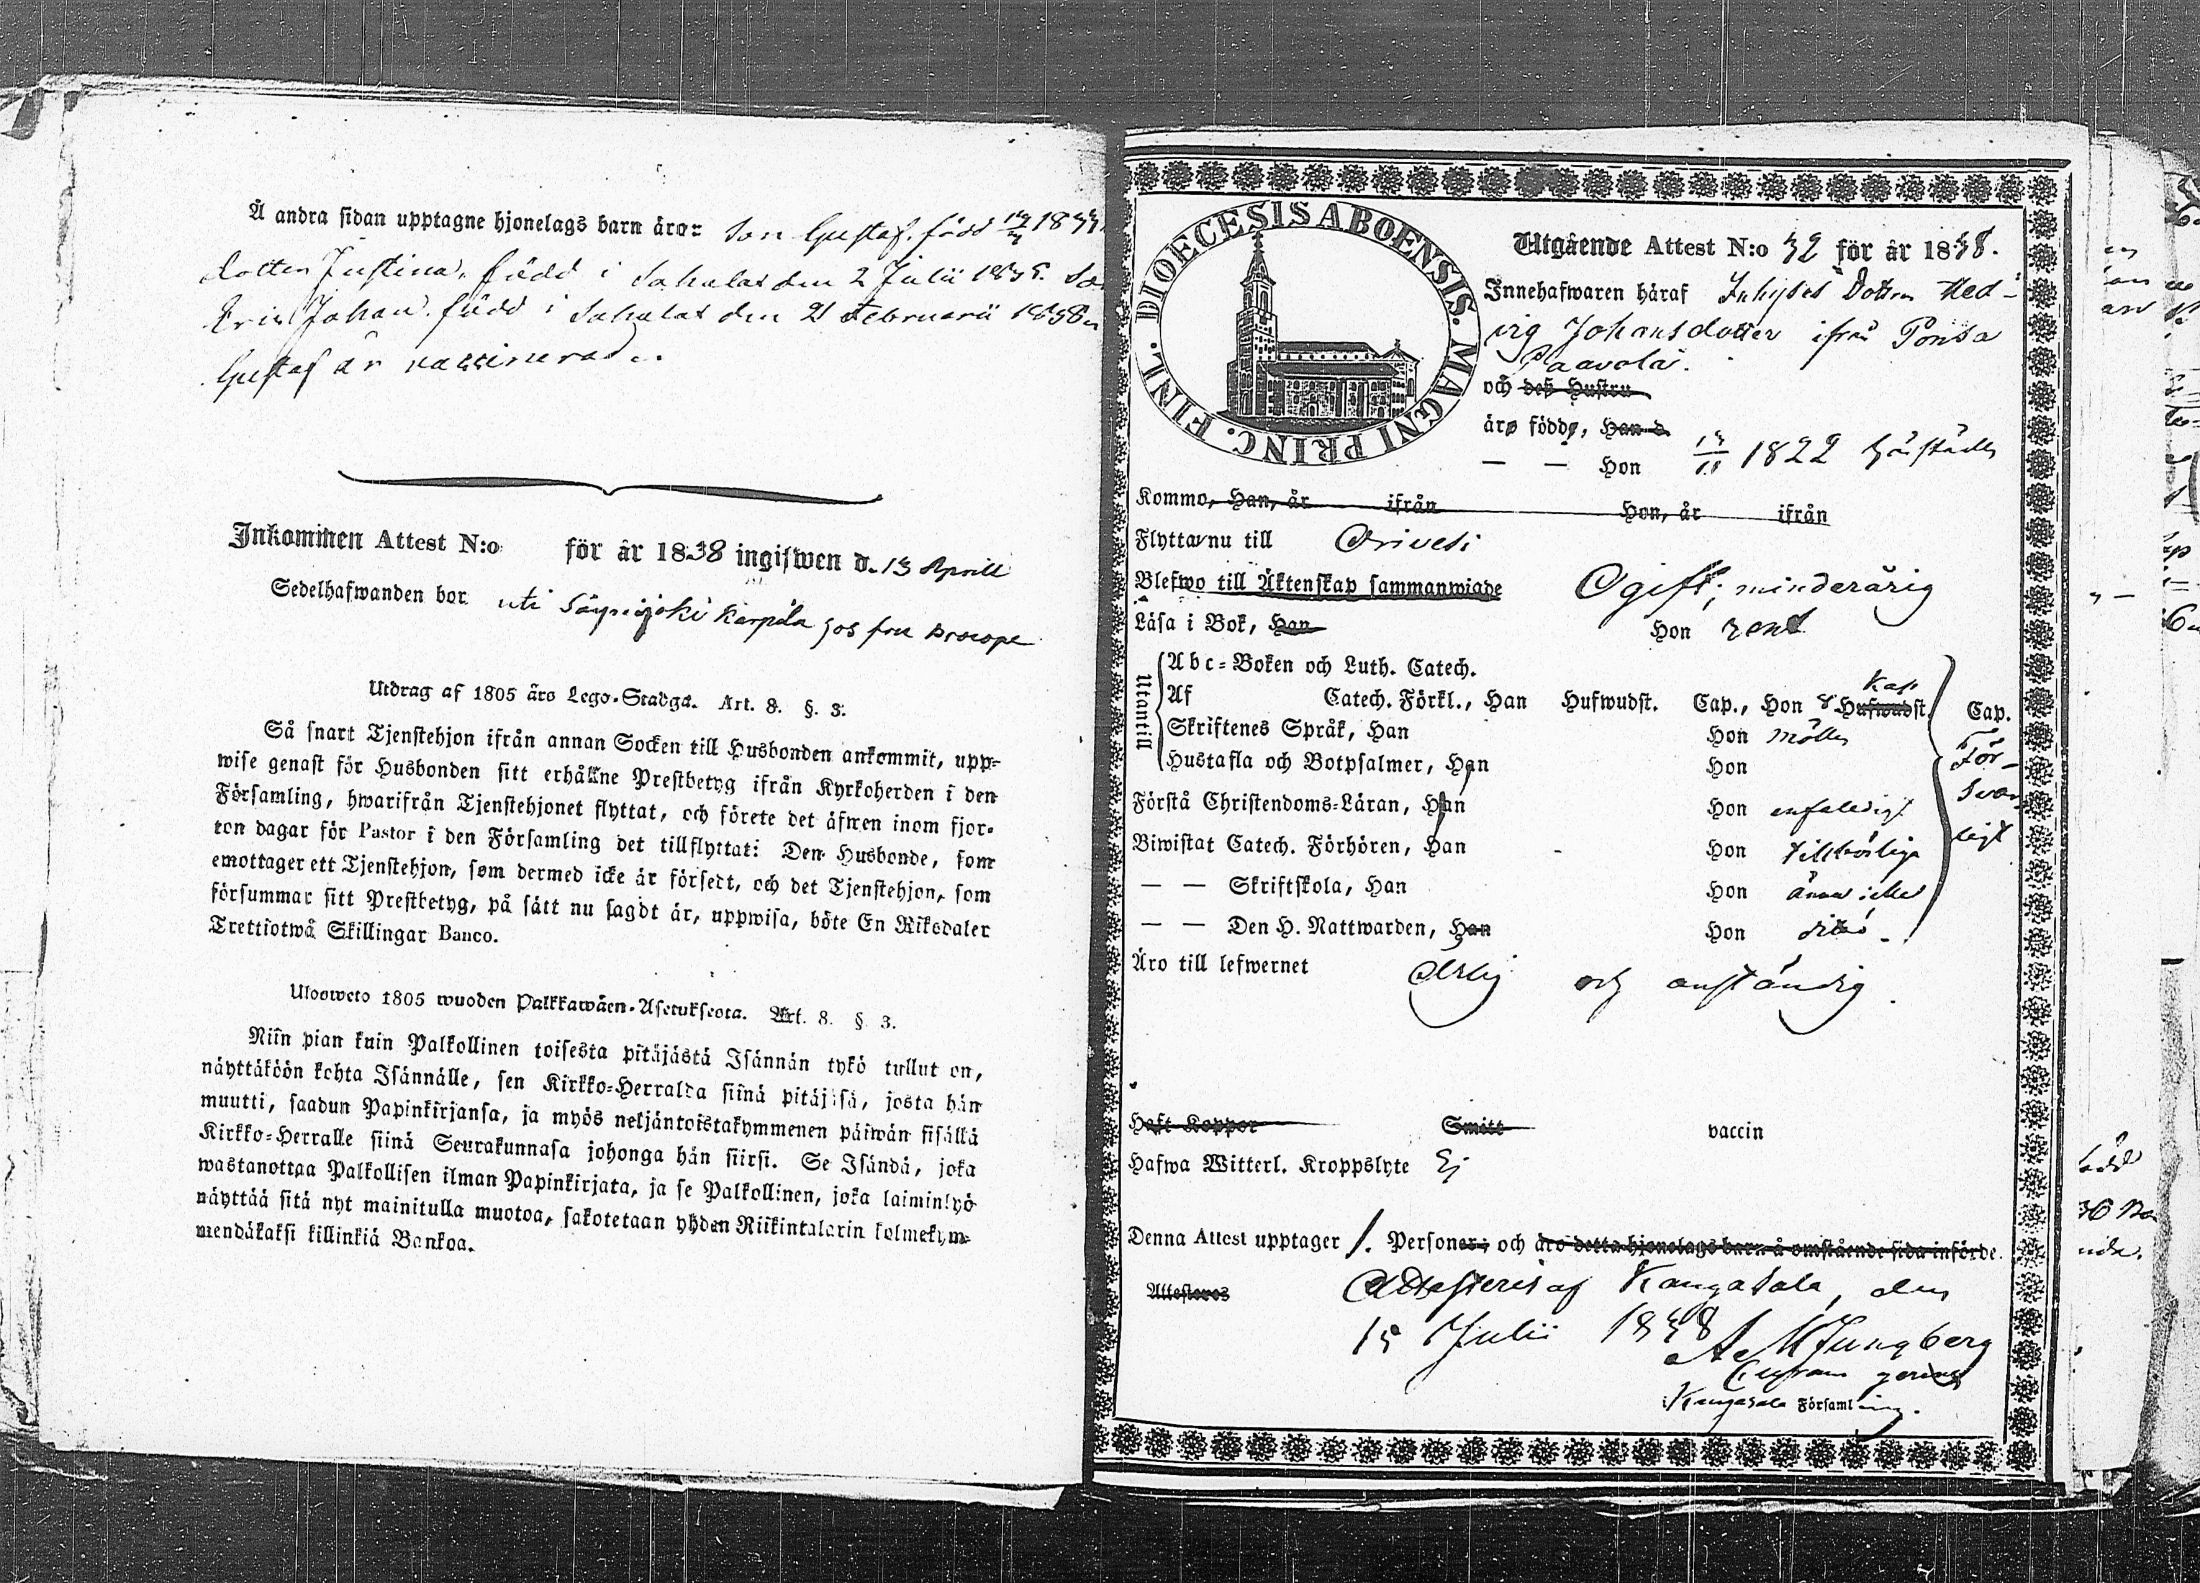 Å andra sidan upptagne hjonelags barn äro: Son Gustaf. född
dotter Justina, född i Sahalax den 2 Julii
Johan född i Sahalax den 21 Februarii 1838
Gustaf är vaccinerad.
Inkommen Attest N:o för år 1838 ingifwen d. 13 Aprill
Sedelhafwanden bor uti Säynäjoki Karpila hos fru
Utdrag af 1805 års Lego-Stadga. Art. 8. §. 3.
Så snart Tjenstehjon ifrån annan Socken till Husbonden ankommit, upp-
wise genast för Husbonden sitt erhållne Prestbetyg ifrån Kyrkoherden i den
Församling, hwarifrån Tjenstehjonet flyttat, och förete det äfwen inom fjor-
ton dagar för Pastor i den Församling det tillflyttat: Den Husbonde, som
emottager ett Tjenstehjon, som dermed icke är försedt, och det Tjenstehjon, som
försummar sitt Prestbetyg, på sätt nu sagdt är, uppwisa, böte En Riksdaler
Trettiotwå Skillingar Banco.
Ulosweto 1805 wuoden Palkkawäen-Asetuksesta. Art. 8. § 3.
Niin pian kuin Palkollinen toisesta pitäjästä Isännän tykö tullut on,
näyttäköön kohta Isännälle, sen Kirkko-Herralda siinä pitäjäsä, josta hän
muutti, saadun Papinkirjansa, ja myös neljäntoistakymmenen päiwän sisällä
Kirkko-Herralle siinä Seurakunnasa johonga hän siirsi. Se Isändä, joka
wastanottaa Palkollisen ilman Papinkirjata, ja se Palkollinen, joka laiminlyö
näyttää sitä nyt mainitulla muotoa, sakotetaan yhden Riikintalarin kolmekym-
mendäkaksi killinkiä Bankoa.
DIOECESIS ABOENSIS. MAGNI PRINC. FINL.
Utgående Attest N:o 32 för år 1838.
Innehafwaren häraf Inhyses Dotter Hed-
vig Johansdotter ifrån Ponsa
Paavola.
och deß Hustru
äro födde, Han d.
— — Hon 13/11 1822 härstädes
Kommo, Han, år ifrån Hon, år ifrån
Flytta nu till Orivesi
Blefwo till Äktenskap sammanwigde Ogift; minderårig
Läsa i Bok, Han Hon rent
Utantill
Abc-Boken och Luth. Catech.
Af Catech. Förkl., Han Hufwudst. Cap., Hon 8 Kap. Hufwudst. Cap.
Skriftenes Språk, Han Hon
Hustafla och Botpsalmer, Han Hon
För-
svar
ligt
Förstå Christendoms-Läran, Han Hon enfaldigt
Biwistat Catech. Förhören, Han Hon tillbörliga
— — Skriftskola, Han Hon ännu icke
— — Den H. Nattwarden, Han Hon dito.
Äro till lefwernet ärlig och anständig.
Haft Koppor Smitt vaccin
Hafwa Witterl. Kroppslyte Ej
Denna Attest upptager 1. Personer; och äro detta hjonelags barn å omstående sida införde.
Attesteres Attesteras af Kangasala, den
15 Julii 1838
A. M. Ljungberg
Curam gerens
i Kangasala Församling.